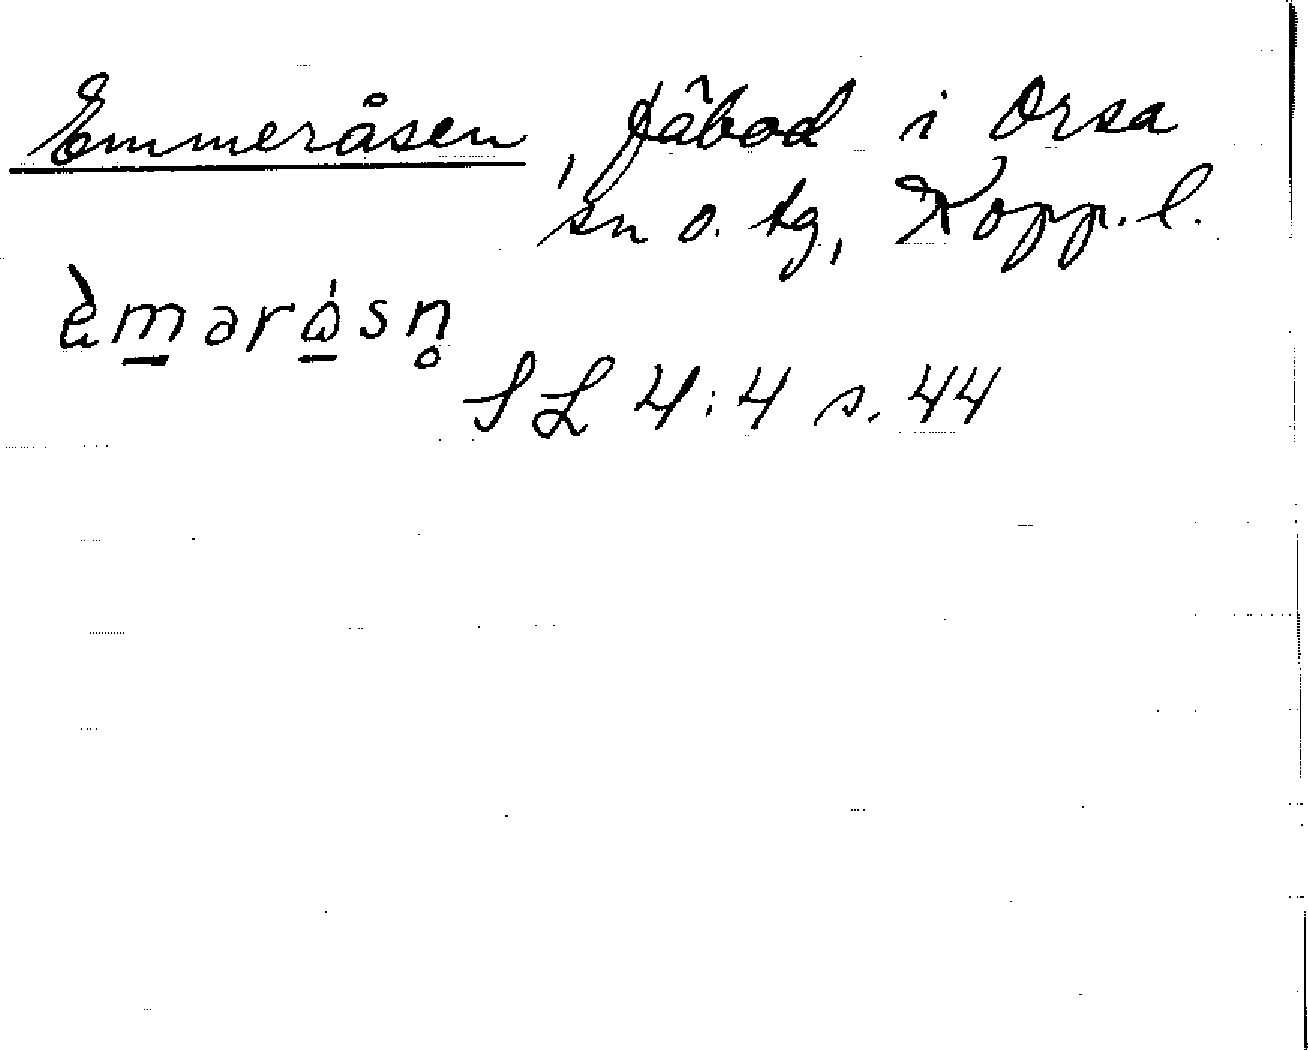 Emmeråsen, fäbod i Orsa
sn o. tg, Kopp. l.
èm̲ərǻ̲sn̥
SL 4:4 s. 44